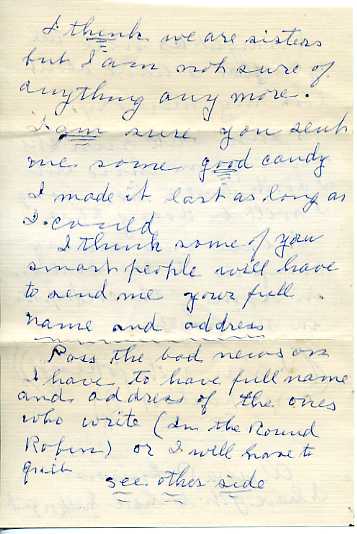 I think we are sisters
but I am not sure of
anything any more.
I am sure you sent
me some good candy
I made it last as long as
I could
I think some of you
smart people will have
to send me your full
name and address
Pass the bad news on
I have to have full name
and address of the ones
who write (In the Round
Robin) or I will have to
quit
see other side